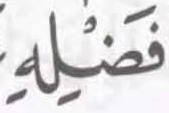 فَضْلِهِ